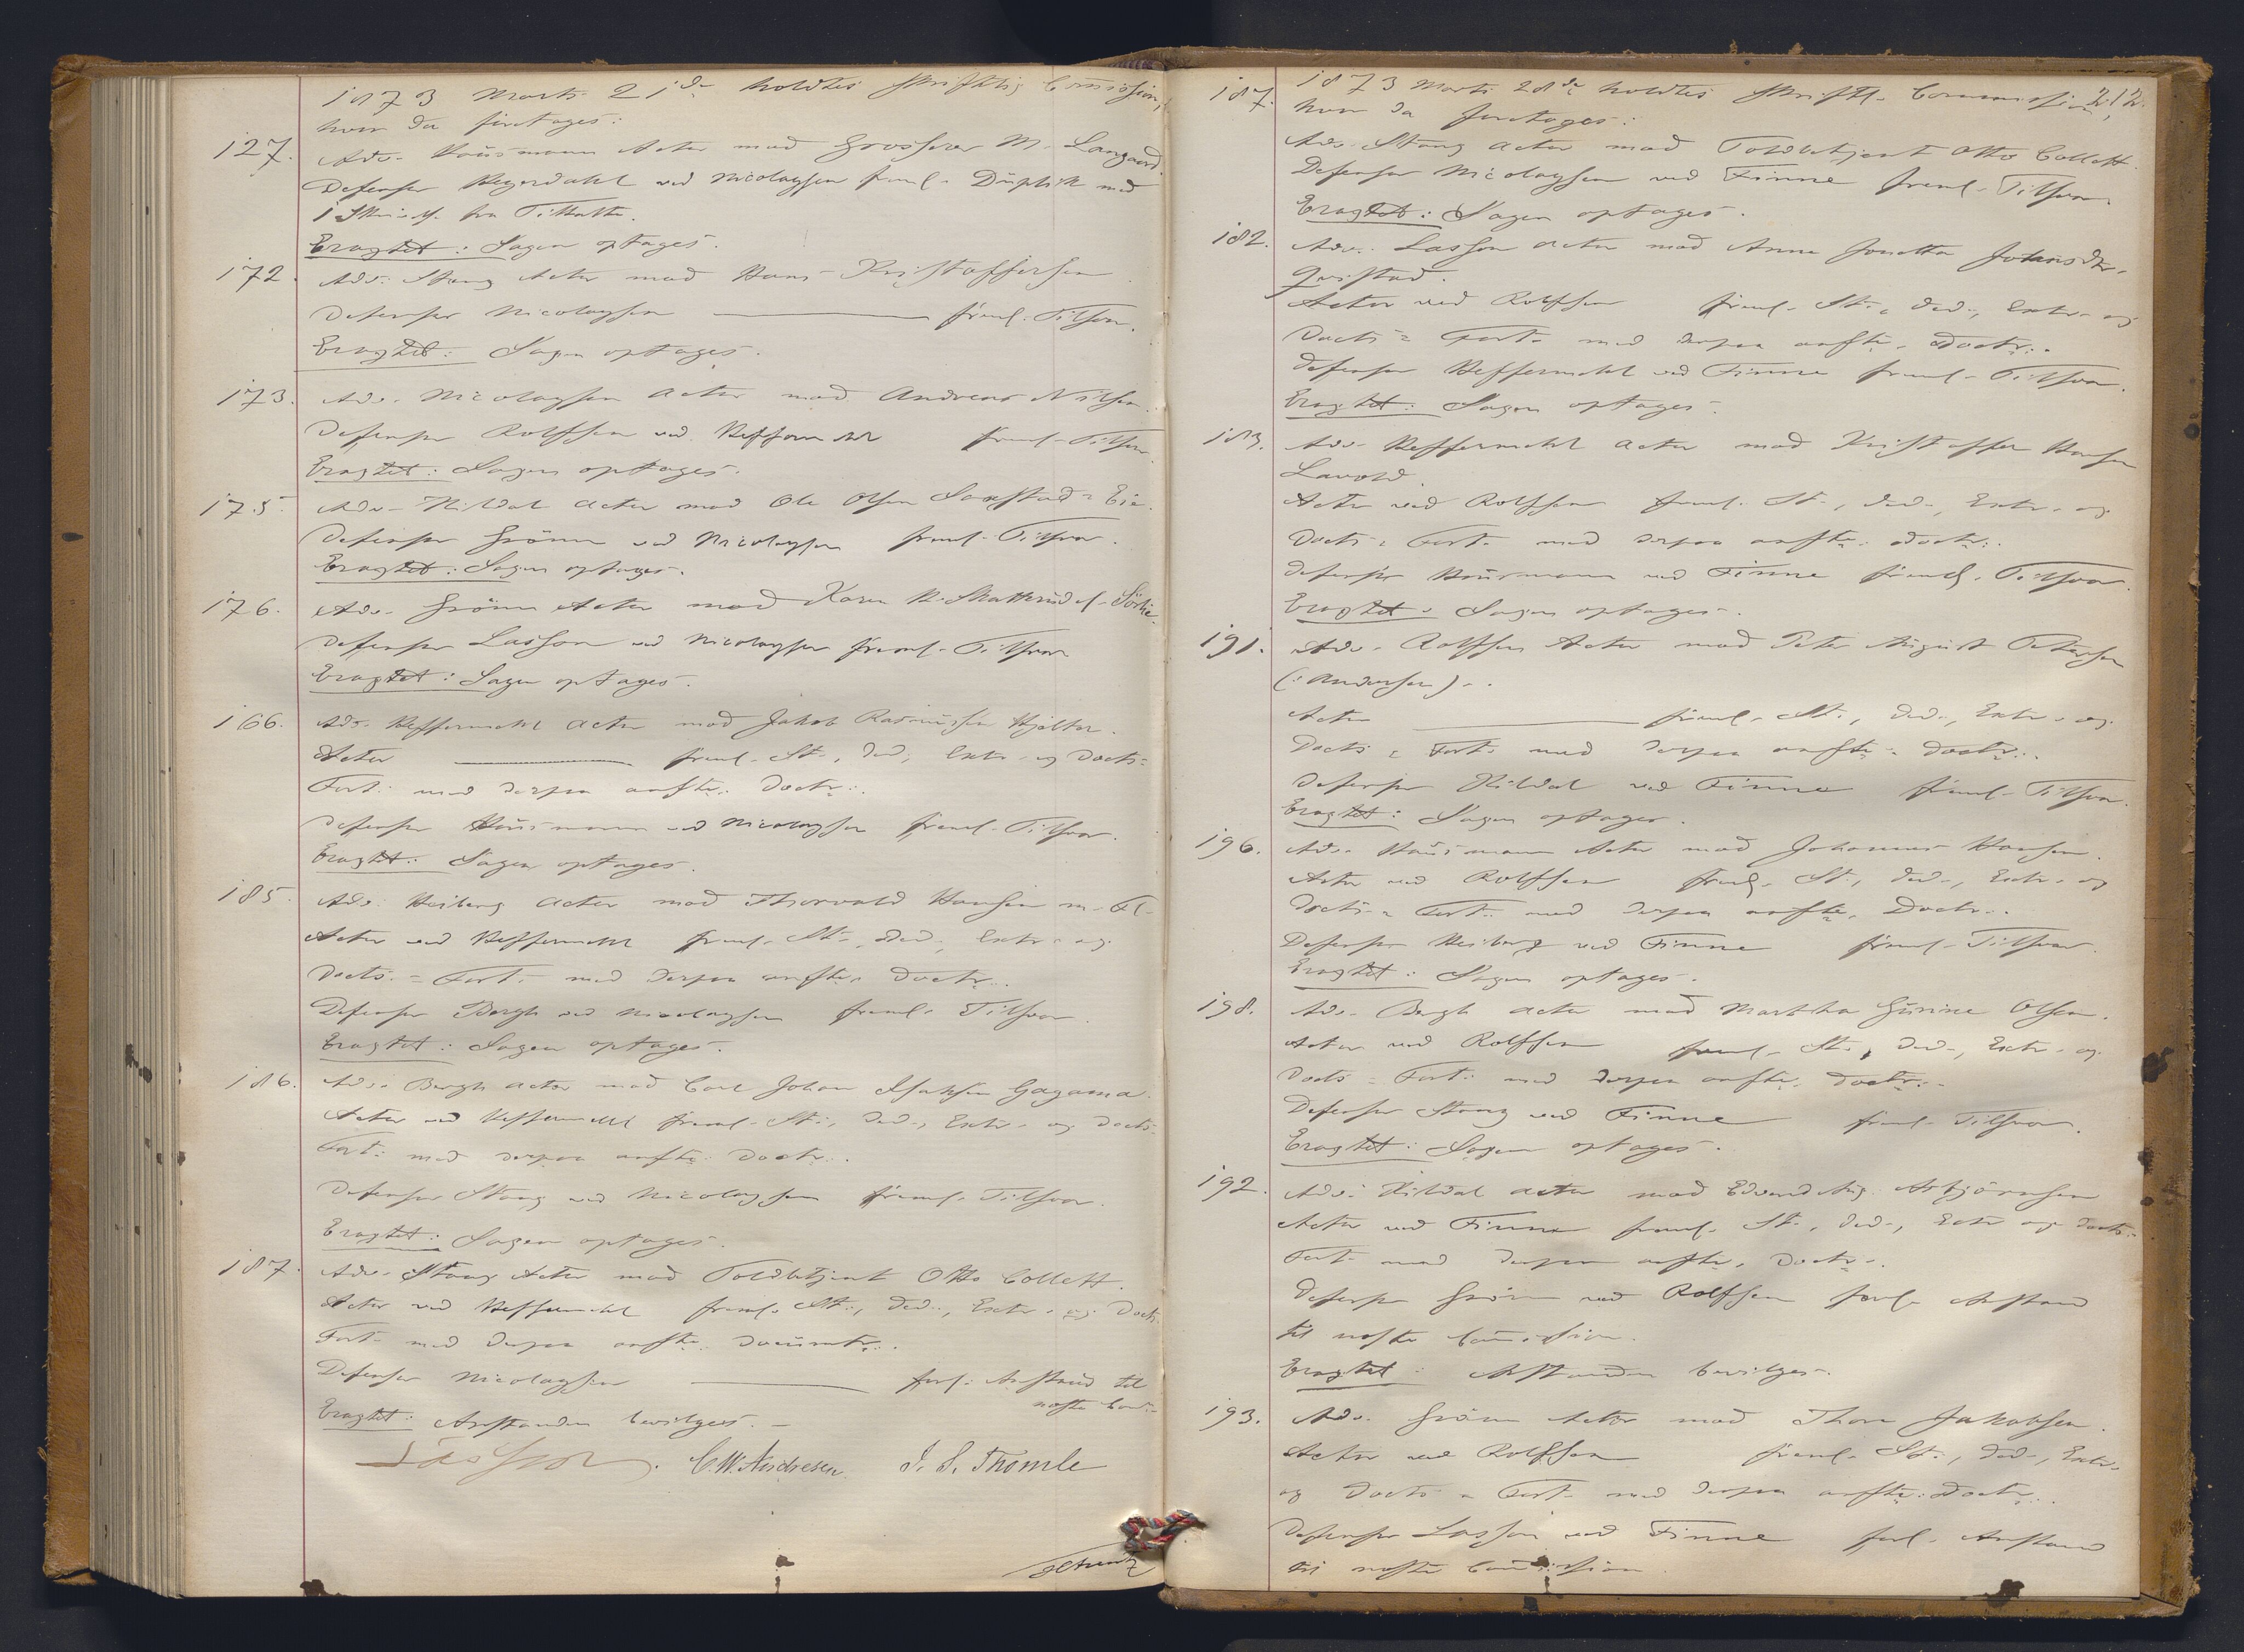 1873 Marts 21de holdtes skriftlig Comission,
hvor da foretages:
127. Adv. Hausmann Actor mod Grosserer M. Langaard.
Defensor Meyerdahl ved Nicolaysen freml. Duplik med
1 Skrivelse fra Tiltalte.
Eragtet: Sagen optages.
172. Adv. Stang Actor mod Hans Kristoffersen
Defensor Nicolaysen freml. Tilsvar.
Eragtet: Sagen optages.
173. Adv. Nicolaysen Actor mod Andreas Nilsen.
Defensor Rolfsen ved Heffermehl freml. Tilsvar.
Eragtet: Sagen optages.
175. Adv. Hildal Actor mod Ole Olsen Eie.
Defensor Grönn ved Nicolaysen freml. Tilsvar.
Eragtet: Sagen optages.
176. Adv. Grönn Actor mod Karen
Defensor Lasson ved Nicolaysen freml. Tilsvar
Eragtet: Sagen optages.
166. Adv. Heffermehl Actor mod Jakob Rasmussen
Actor freml. St., Ded., Extr. og Docts=
Fort. med derpaa anfte. Doctr.
Defensor Hausmann ved Nicolaysen freml. Tilsvar.
Eragtet: Sagen optages.
185. Adv. Heiberg Actor mod Thorvald Hansen m. Fl.
Actor ved Heffermehl freml. St., Ded., Extr. og
Docts.=Fort. med derpaa anfte. Doctr.
Defensor Bergh ved Nicolaysen freml. Tilsvar.
Eragtet: Sagen optages.
186. Adv. Bergh Actor mod Carl Johan Isaksen Gagama.
Actor ved Heffermehl freml. St., Ded., Extr. og Docts=
Fort. med derpaa anfte. Doctr.
Defensor Stang ved Nicolaysen freml. Tilsvar.
Eragtet: Sagen optages.
187. Adv. Stang Actor mod Toldbetjent Otto Collett.
Actor ved Heffermehl freml. St., Ded., Extr. og Docts.
Fort. med derpaa anfte. Documtr.
Defensor Nicolaysen forl. Anstand til
næste Com=
Eragtet: Anstanden bevilges.
Lasson. C.W. Andresen J. S. Thomle
212.
187. 1873 Marts 28de holdtes skriftl. Commission,
hvor da foretages:
Adv. Stang Actor mod Toldbetjent Otto Collett.
Defensor Nicolaysen ved Finne freml. Tilsvar.
Eragtet: Sagen optages.
182. Adv. Lasson Actor mod Anne Jonetta Johansdtr.
Qvistad.
Actor ved Rolfsen freml. St., Ded., Extr. og
Docts=Fort. med derpaa anfte. Doctr.
Defensor Heffermehl ved Finne freml. Tilsvar.
Eragtet: Sagen optages.
183. Adv. Heffermehl Actor mod Kristoffer Hansen
Lavold.
Actor ved Rolfsen freml. St., Ded., Extr. og
Docts=Fort. med derpaa anfte. Doctr.
Defensor Hausmann ved Finne freml. Tilsvar.
Eragtet: Sagen optages.
191. Adv. Rolfsen Actor mod Peter August Petersen
(: Andersen).
Actor freml. St., Ded., Extr. og
Docts=Fort. med derpaa anfte. Doctr.
Defensor Hildal ved Finne freml. Tilsvar.
Eragtet: Sagen optages.
196. Adv. Hausmann Actor mod Johannes Hansen.
Actor ved Rolfsen freml. St., Ded., Extr. og
Docts=Fort. med derpaa anfte. Doctr.
Defensor Heiberg ved Finne freml. Tilsvar.
Eragtet: Sagen optages.
198. Adv. Bergh Actor mod Marthe Gurine Olsen.
Actor ved Rolfsen freml. St., Ded., Extr. og
Docts=Fort. med derpaa anfte. Doctr.
Defensor Stang ved Finne freml. Tilsvar.
Eragtet: Sagen optages.
192. Adv. Hildal Actor mod Edvard Aug. Asbjörnsen
Actor ved Finne freml. St., Ded., Extr. og Docts=
Fort. med derpaa anfte. Doctr.
Defensor Grönn ved Rolfsen forl. Anstand
til næste Comission.
Eragtet: Anstanden bevilges.
193. Adv. Grönn Actor mod Thore Jakobsen.
Actor ved Rolfsen freml. St., Ded., Extr.
og Docts=Fort. med derpaa anfte. Doctr.
Defensor Lasson ved Finne forl. Anstand
til næste Comission.